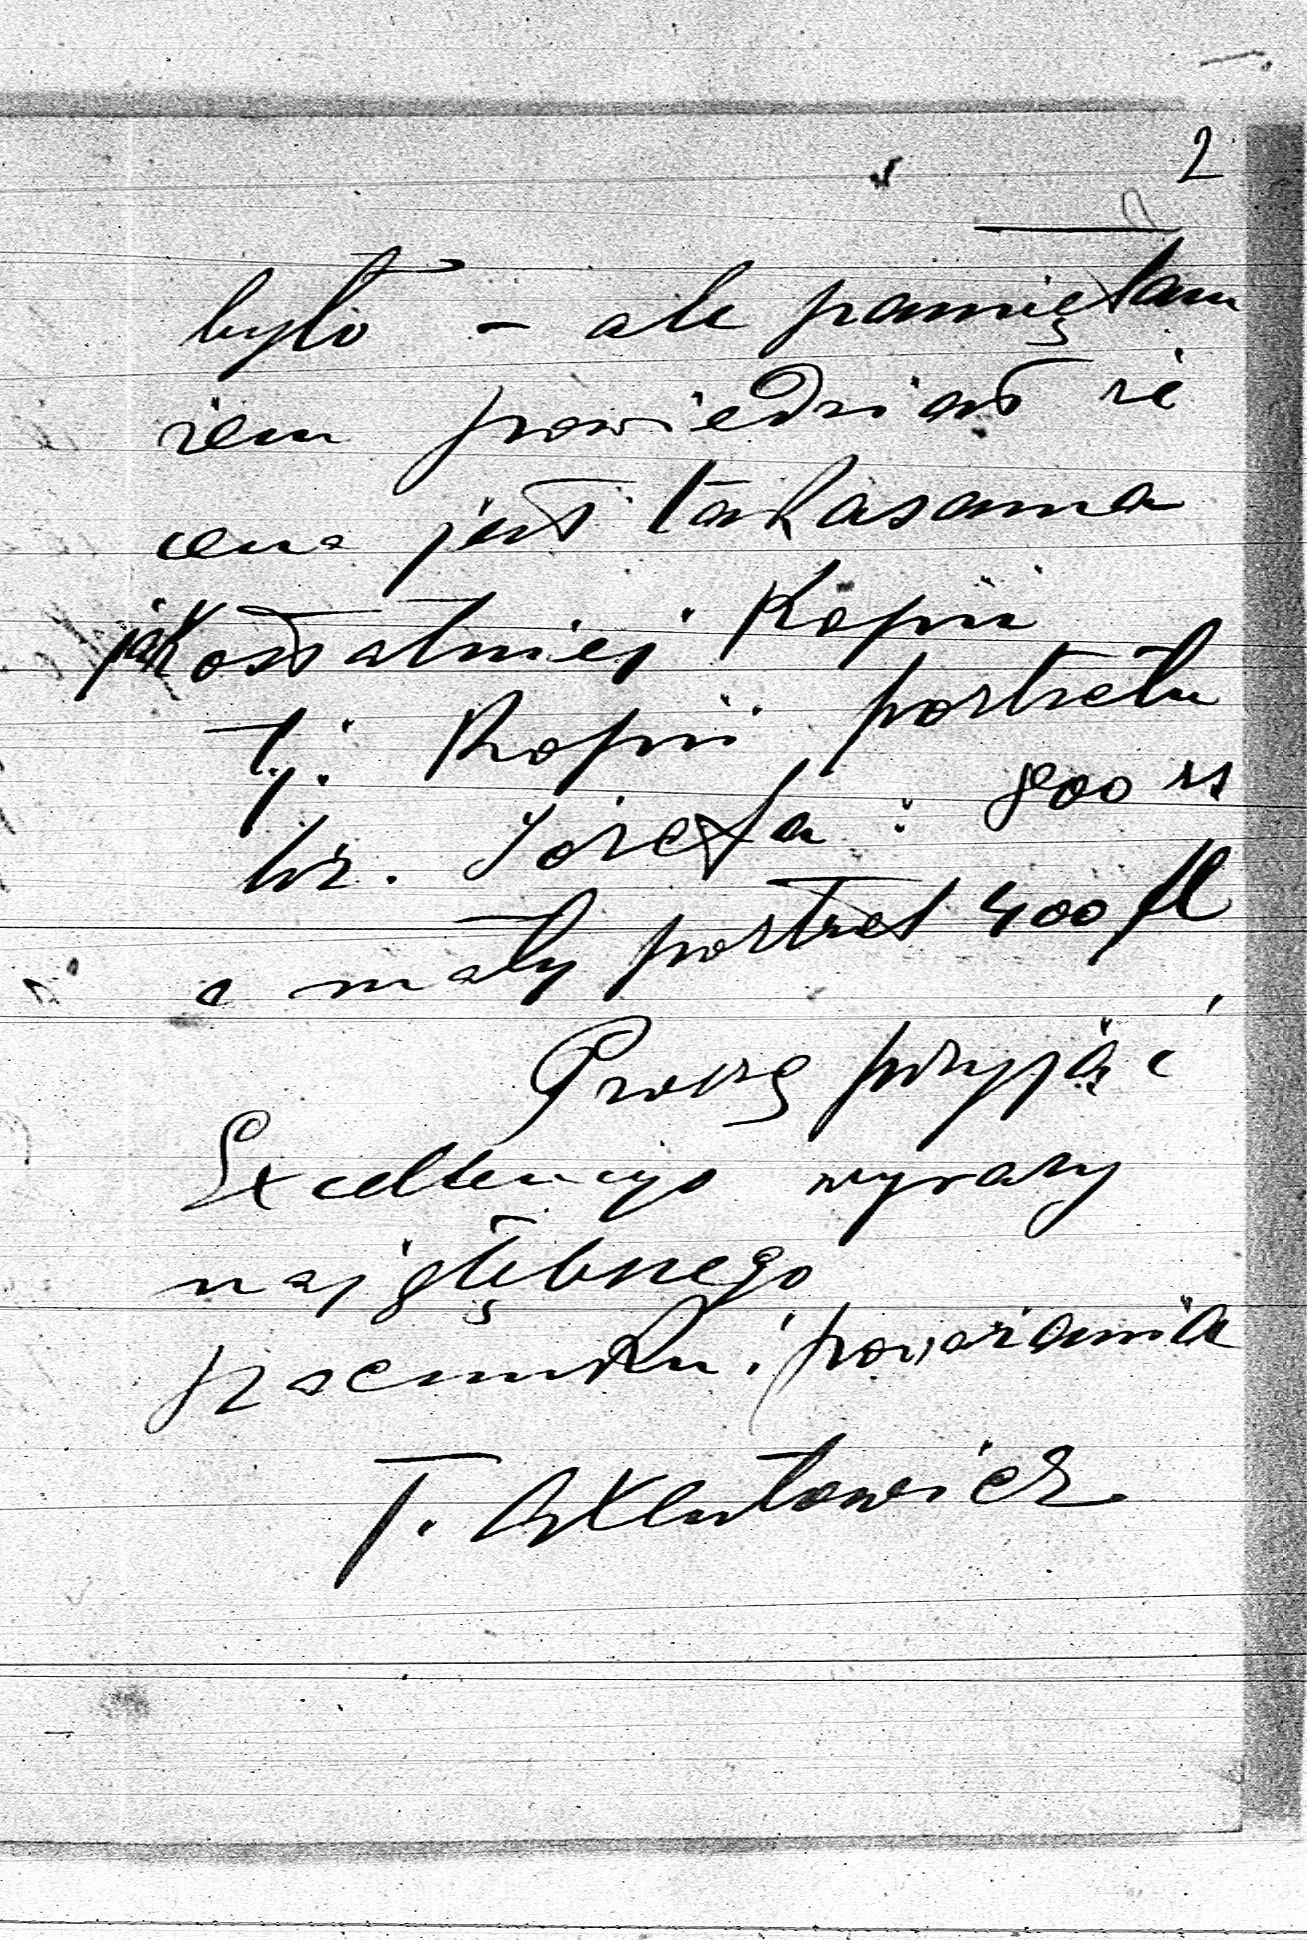 2
było – ale pamiętam
żem powiedział że
cena jest takasama
jak ostatniej Kopii
tj. Kopii portretu
hr. Józefa : 800 zł
a mały portret 400 fl
Proszę przyjąć
Excellencyo wyrazy
najgłębszego
szacunku i poważania
T. Axentowicz